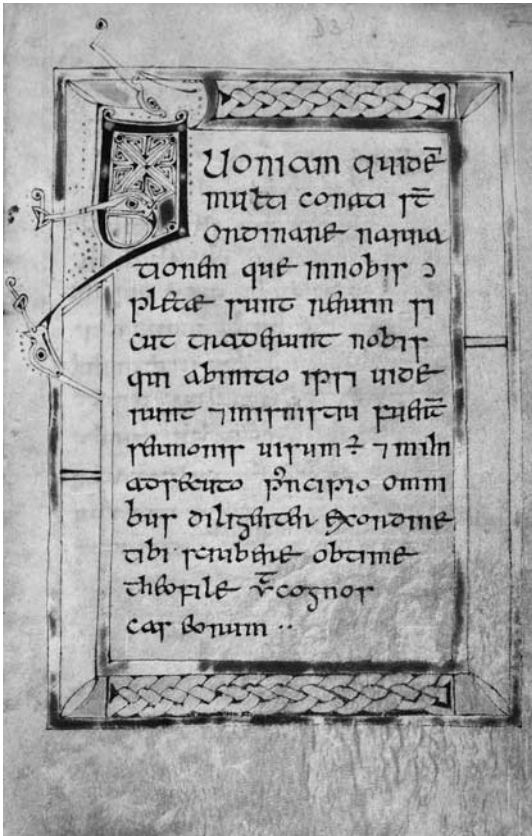 QUoniam quidē
multi conati st̄
ordinare narra
tionem que innobis ɔ
pletæ sunt rerum si
cut traderunt nobis
qui abinitio ipsi uide
runt ⁊ministri fuer̄t
sermonis uisum ÷ ⁊mihi
adsecuto pͥncipio omni
bus diligenter exordine
tibi scribere obtime
theofile v̄ cognos
cas eorum ··